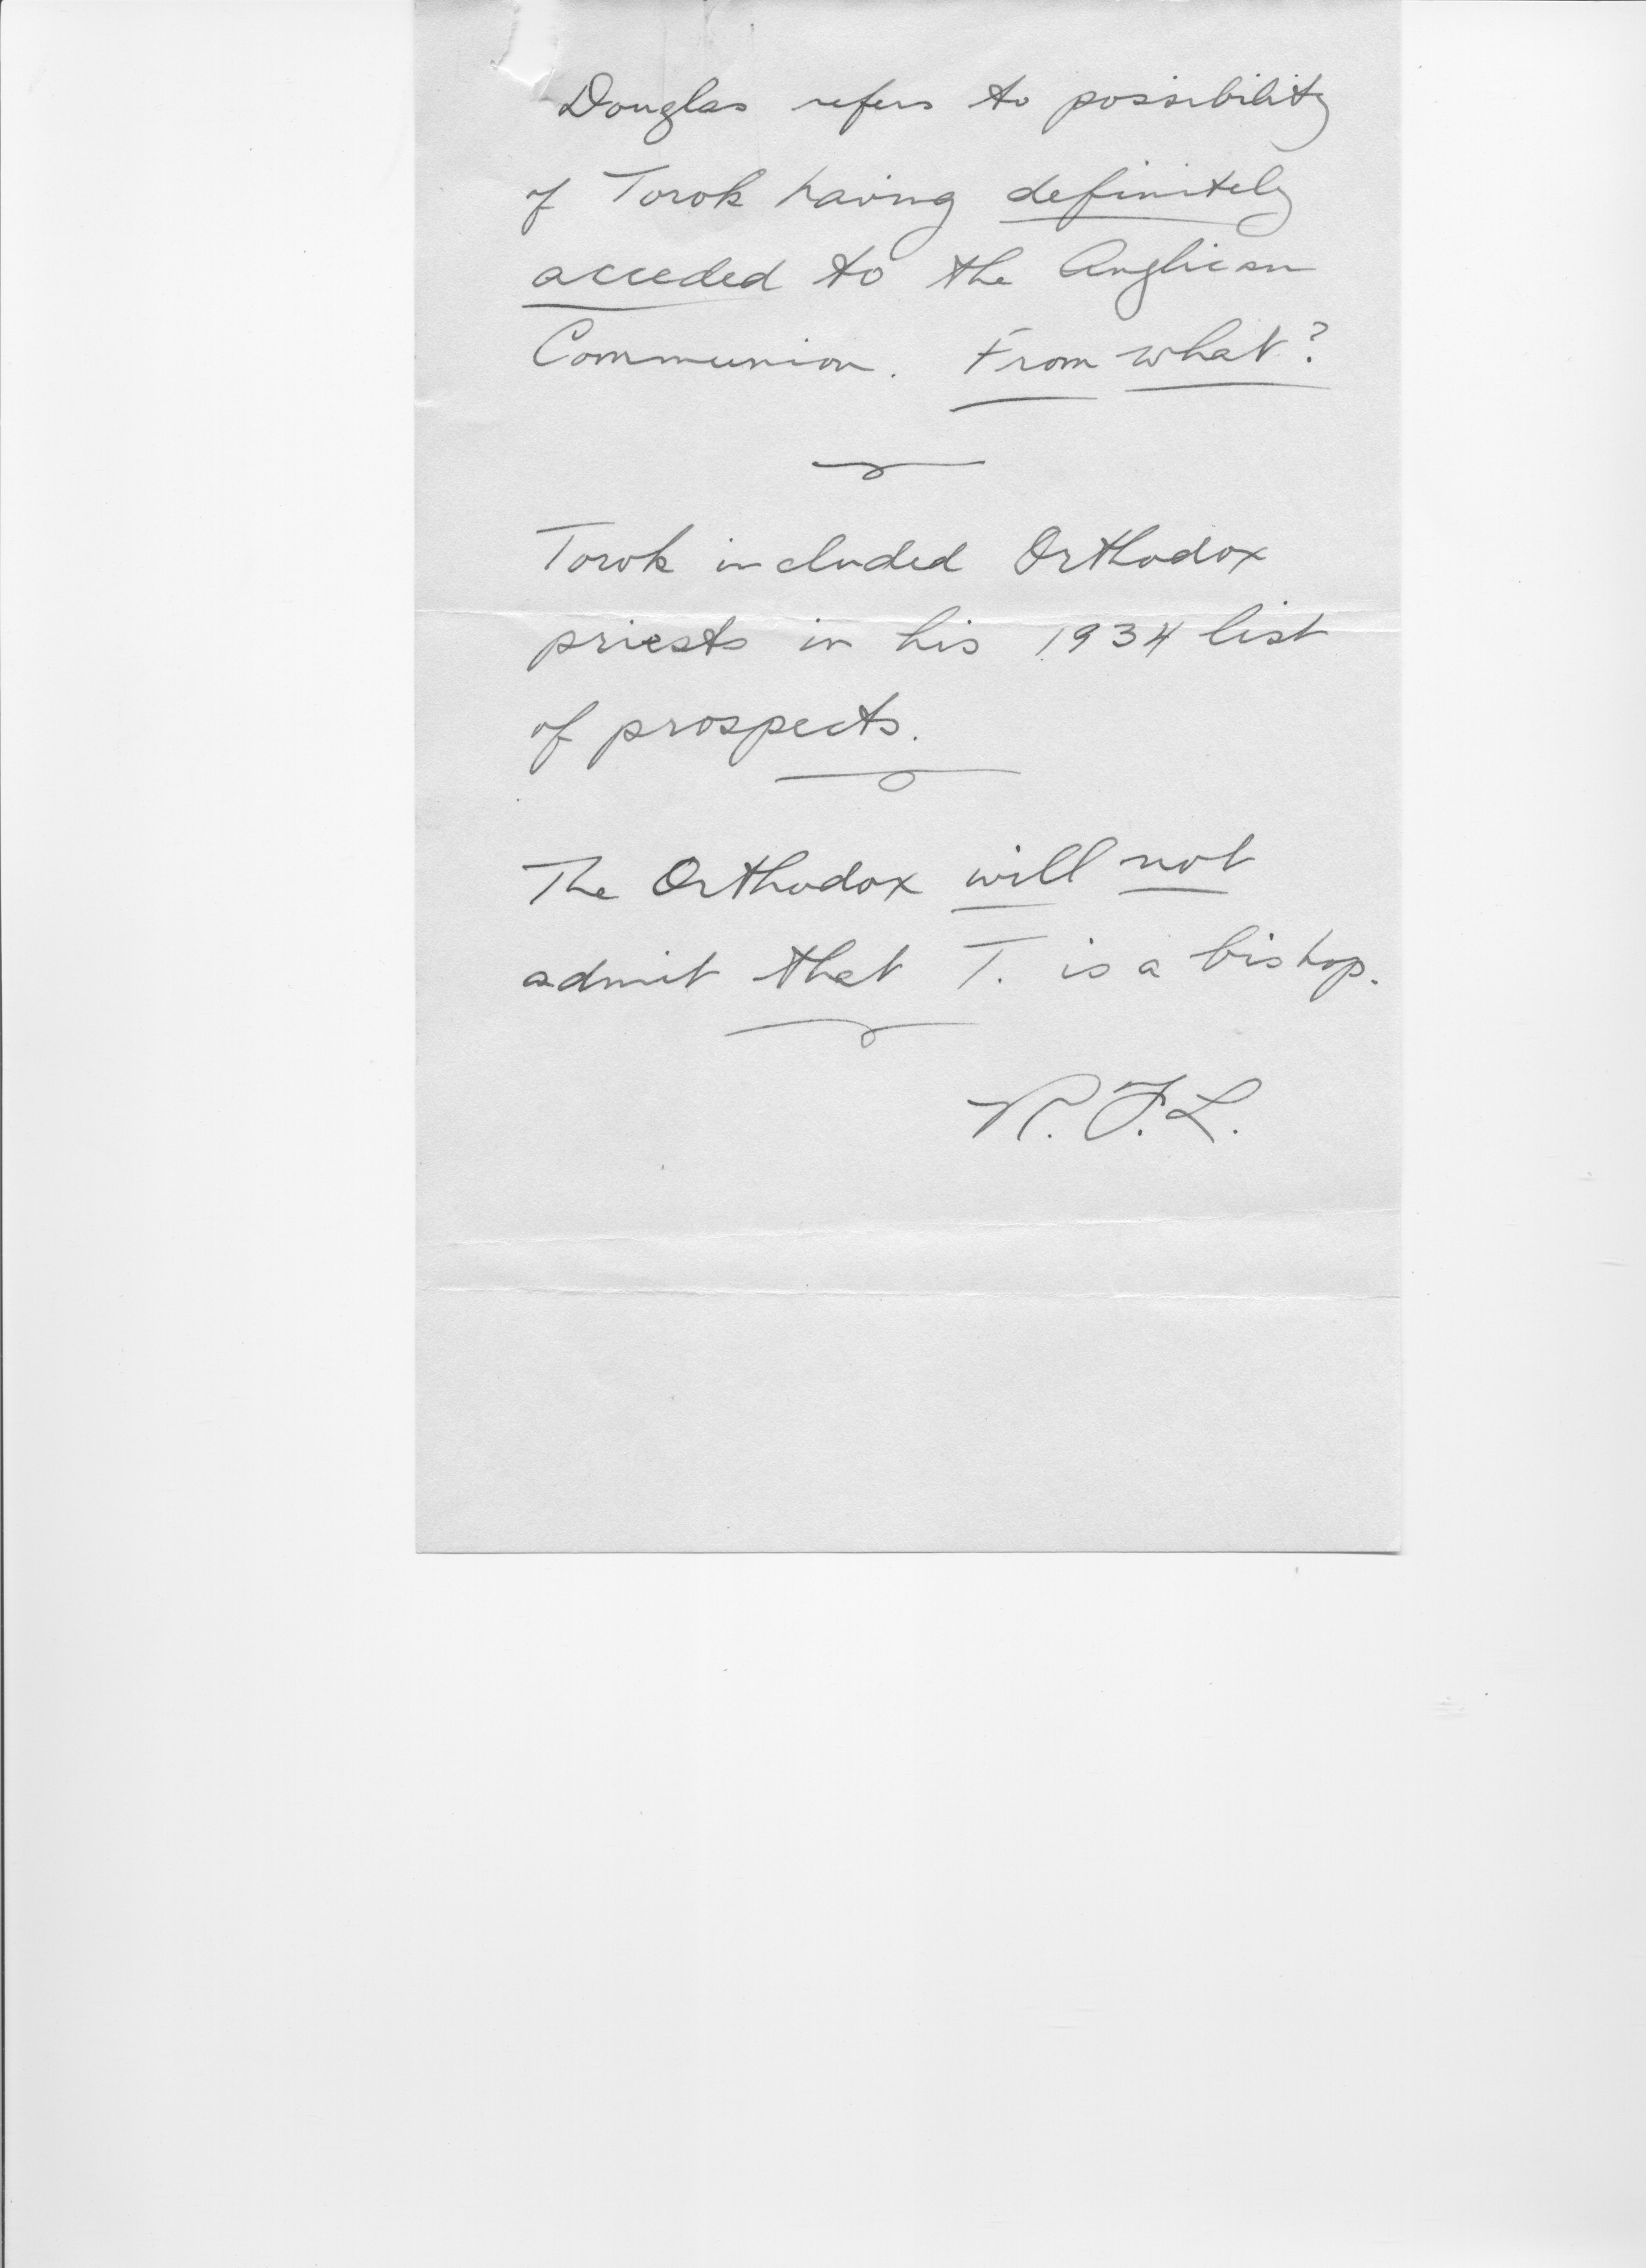 Douglas refers to possibility
of Torok having definitely
acceded to the Anglican
Communion. From what?
Torok included Orthodox
priests in his 1934 list
of prospects.
The Orthodox will not
admit that T. is a bishop.
R. F. L.